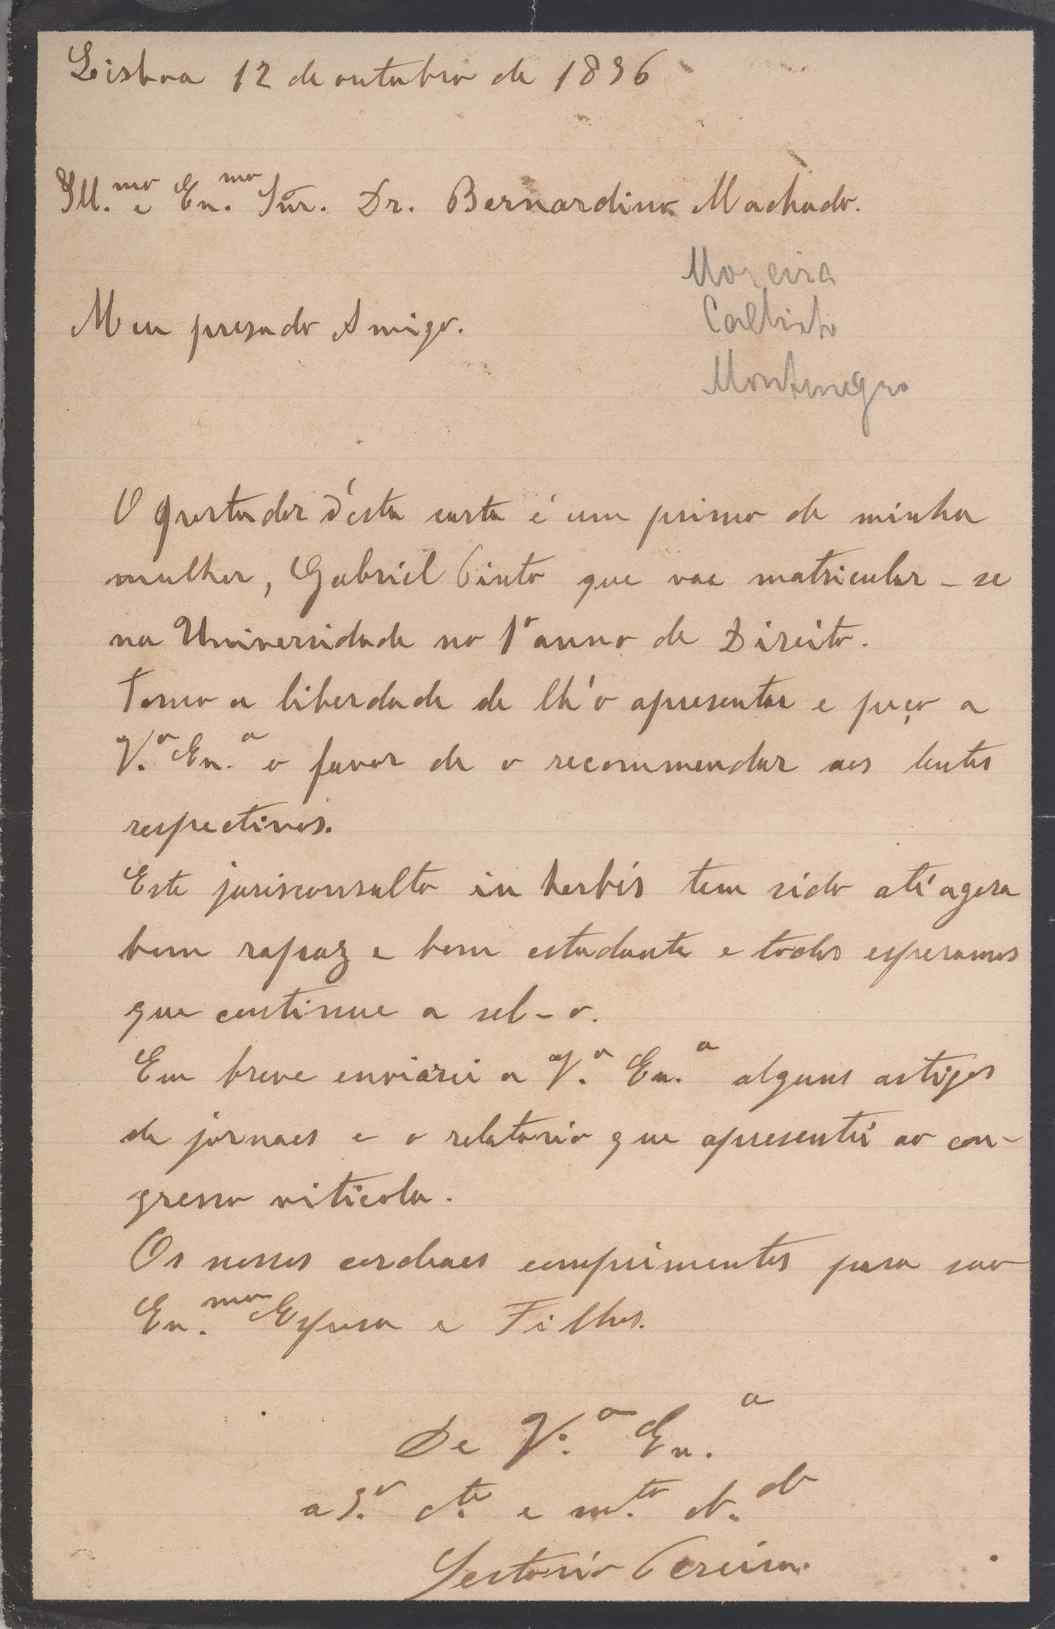 Lisboa 12 de outubro de 1896
Ill.mo e Ex.mo Snr. Dr. Bernardino Machado.
Moreira
Callisto
Montenegro
Meu presado Amigo.
O portador d'esta carta é um primo de minha
mulher, Gabriel Pinto que vae matricular-se
na Universidade no 1º anno de Direito.
Tomo a liberdade de lh'o apresentar e peço a
V.a Ex.a o favor de o recommendar aos lentes
respectivos.
Este jurisconsulto in herbis tem sido até agora
bom rapaz e bom estudante e todos esperamos
que continue a sel-o.
Em breve enviarei a V.a Ex.a alguns artigos
de jornaes e o relatorio que apresentei ao con-
gresso viticola.
Os nossos cordeaes comprimentos para sua
Ex.ma Esposa e Filhos.
De V.a Ex.a
a e m.to ob.do
Sertorio Pereira.